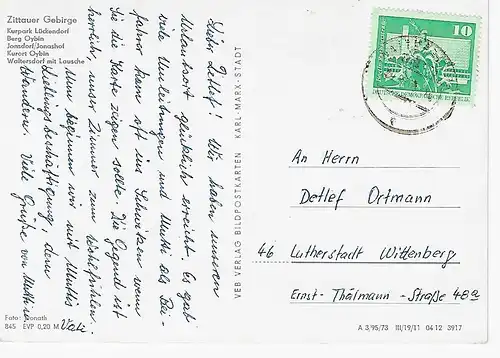 Zittauer Gebirge
Kurpark Lückendorf
Berg Oybin
Jonsdorf/Jonashof
Kurort Oybin
Waltersdorf mit Lausche
Lieber Detlef! Wir haben unseren
Urlaubsort glücklich erreicht. Es gab
viele Umleitungen und Mutti als Bei-
fahrer kam oft ins Schwitzen wenn
sie die Karte zeigen sollte. Die Gegend ist
herrlich, unser Zimmer zum Wohlfühlen.
Nun beginnen wir mit Muttis
Lieblingsbeschäftigung, dem
Wandern. Viele Grüße von Mutti u.
Vati.
Foto: Donath
845 EVP 0,20 M
VEB VERLAG BILDPOSTKARTEN KARL-MARX-STADT
10
An Herrn
Detlef Ortmann
46 Lutherstadt Wittenberg
Ernst-Thälmann-Straße 48a
A 3,95/73 III/19/11 04 12 3917